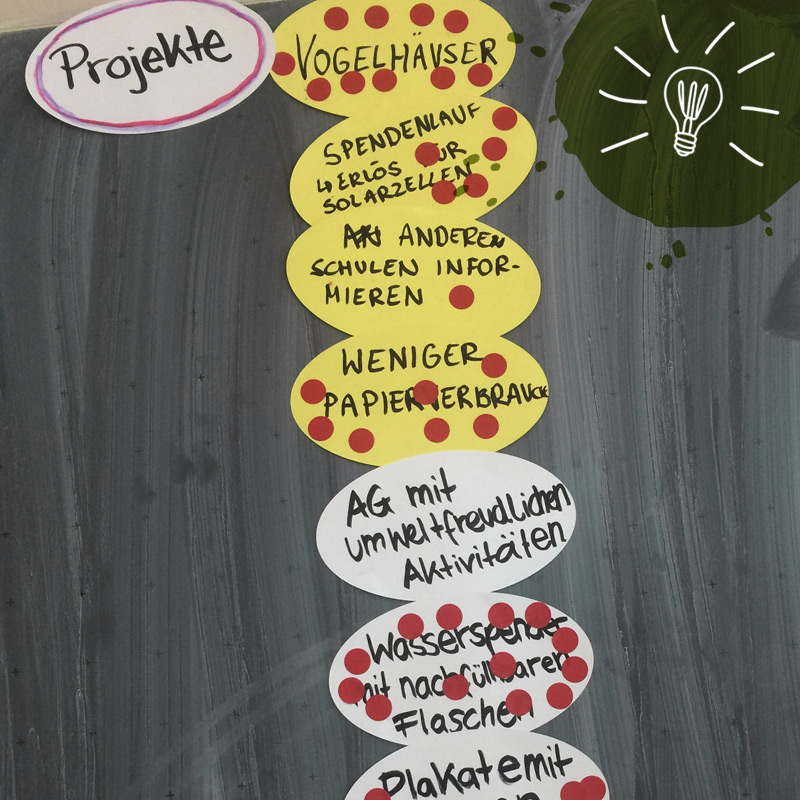 Projekte
VOGELHÄUSER
SPENDENLAUF
↳ ERLÖS FÜR
SOLARZELLEN
ANDEREN
SCHULEN INFOR-
MIEREN
WENIGER
PAPIERVERBRAUCH
AG mit
umweltfreudlichen
Aktivitäten
Wasserspender
mit nachfüllbaren
Flaschen
Plakate mit